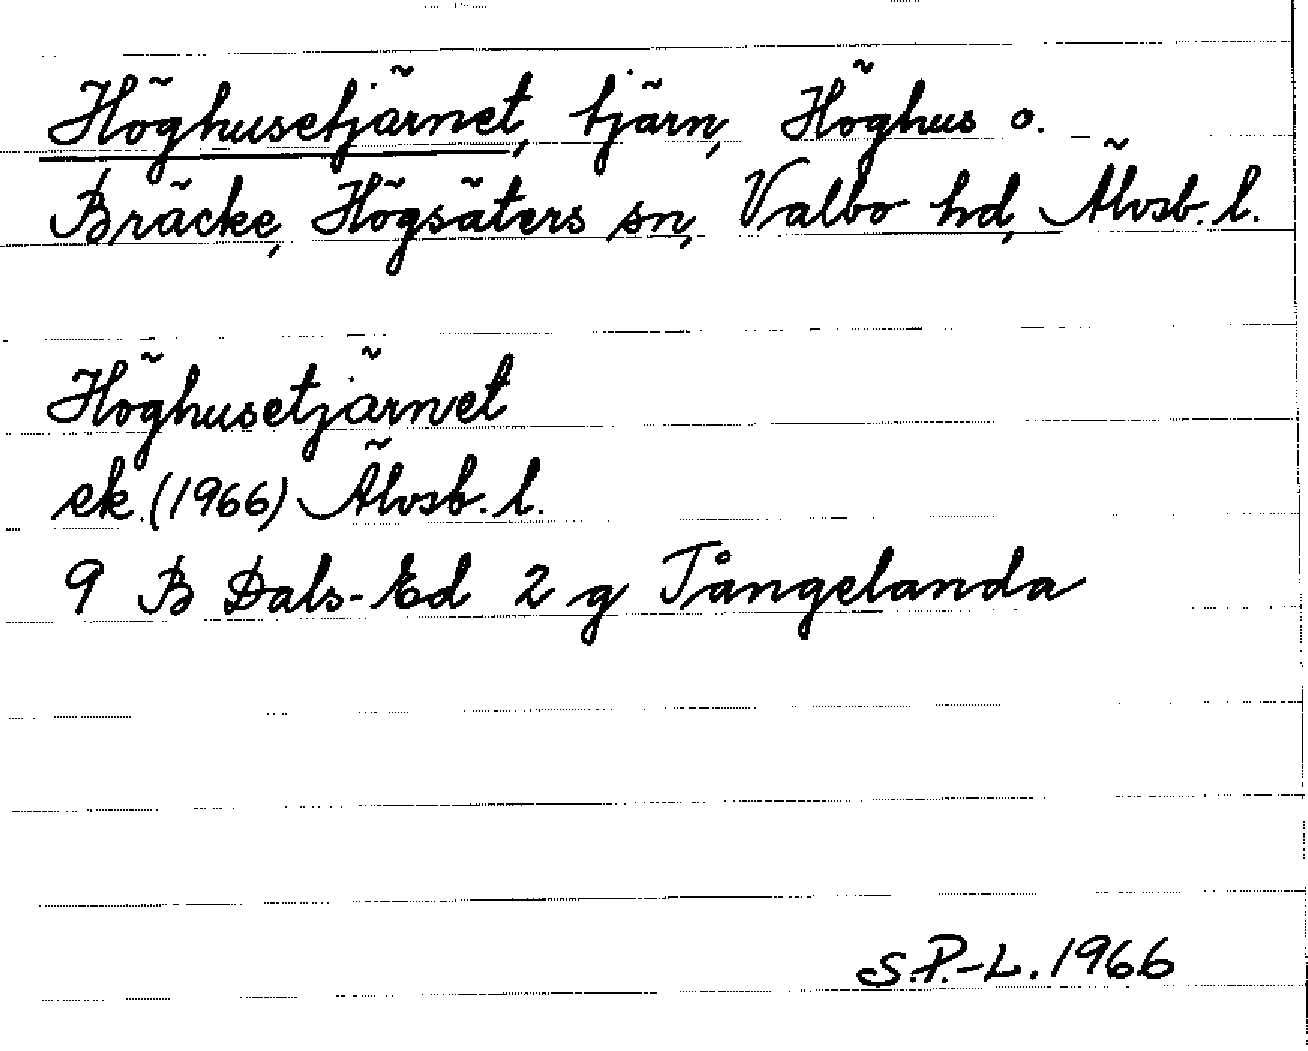 Höghusetjärnet, tjärn, Höghus o.
Bräcke, Högsäters sn, Valbo hd, Älvsb. l.
Höghusetjärnet
ek. (1966) Älvsb. l.
9 B Dals-Ed 2 g Tångelanda
S.P.-L. 1966